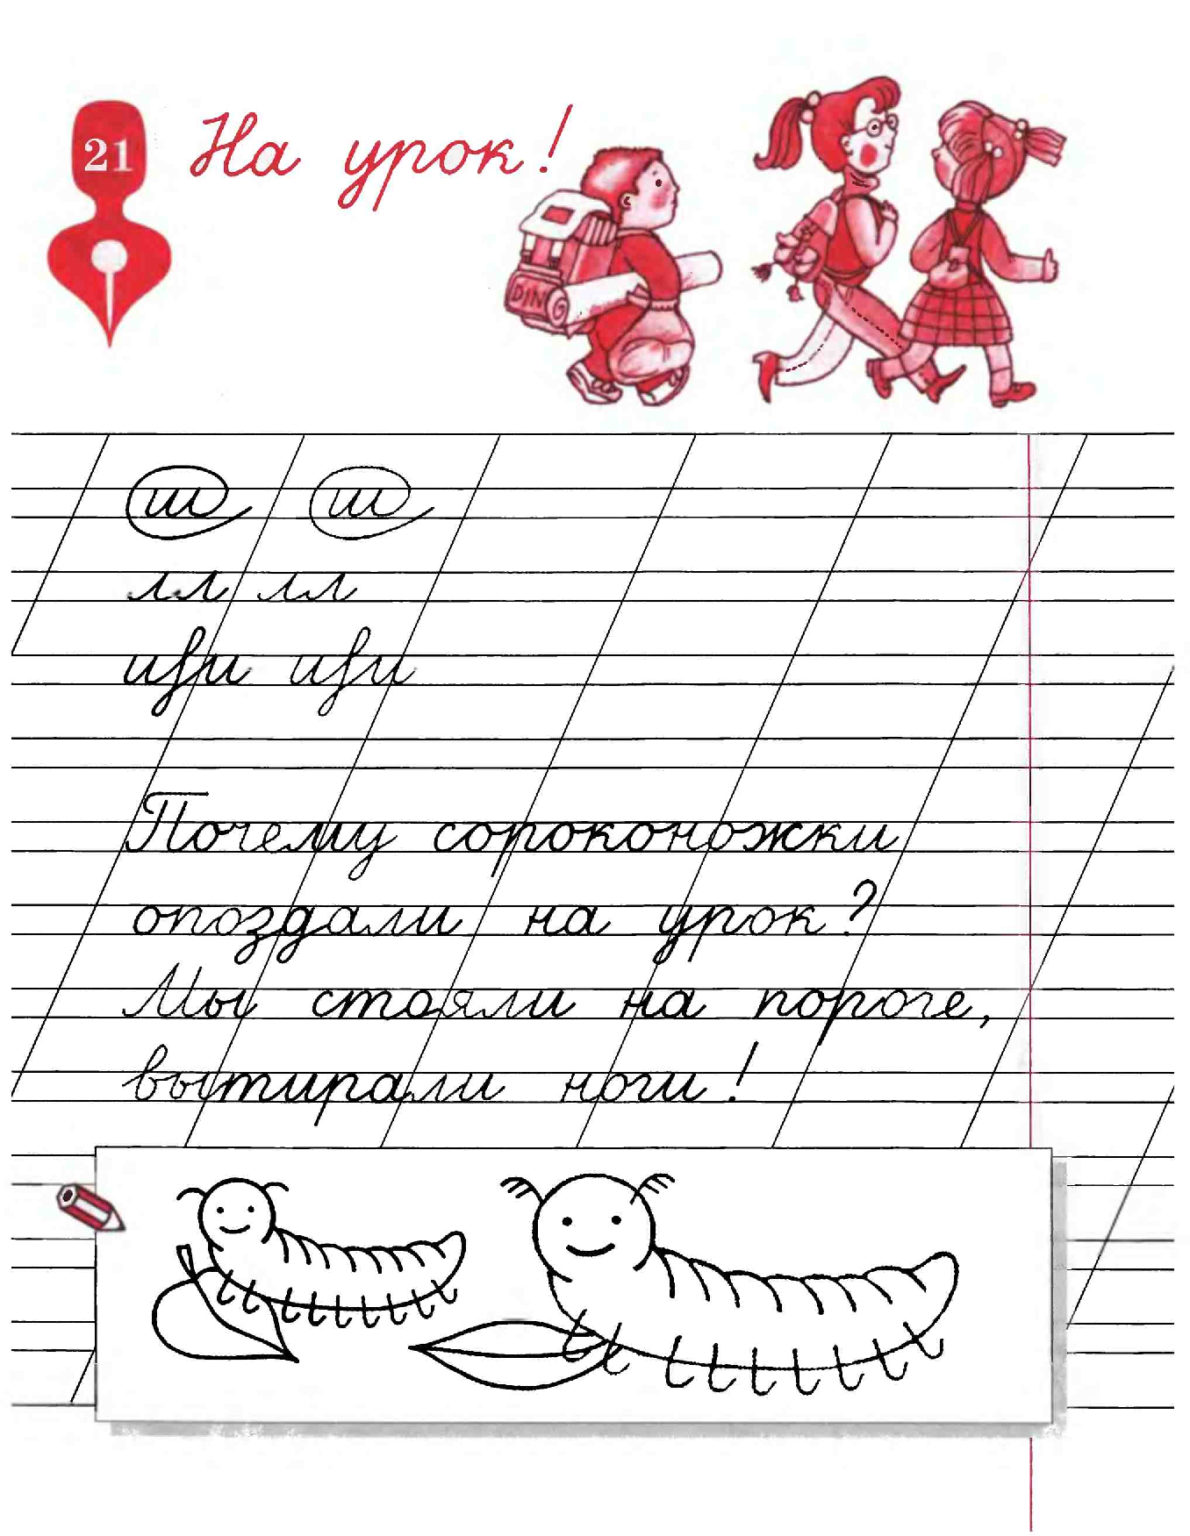 21
На урок!
DING
ш ш
лл лл
Почему сороконожки
опоздали на урок?
Мы стояли на пороге,
вытирали ноги!